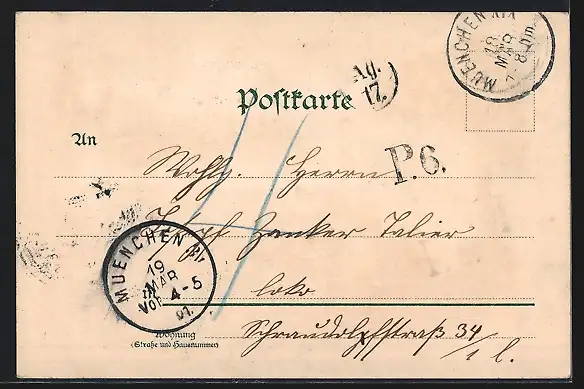 MUENCHEN XIX
19
MAR
7-8 Nm.
Ag.
17.
Postkarte
An
Wohlg. Herrn
P.6.
Josef Zanker Talier
MUENCHEN
19
MAR
Vor 4-5
loko
Wohnung
(Straße und Hausnummer)
Schraudolfstraß 34
/1 l.